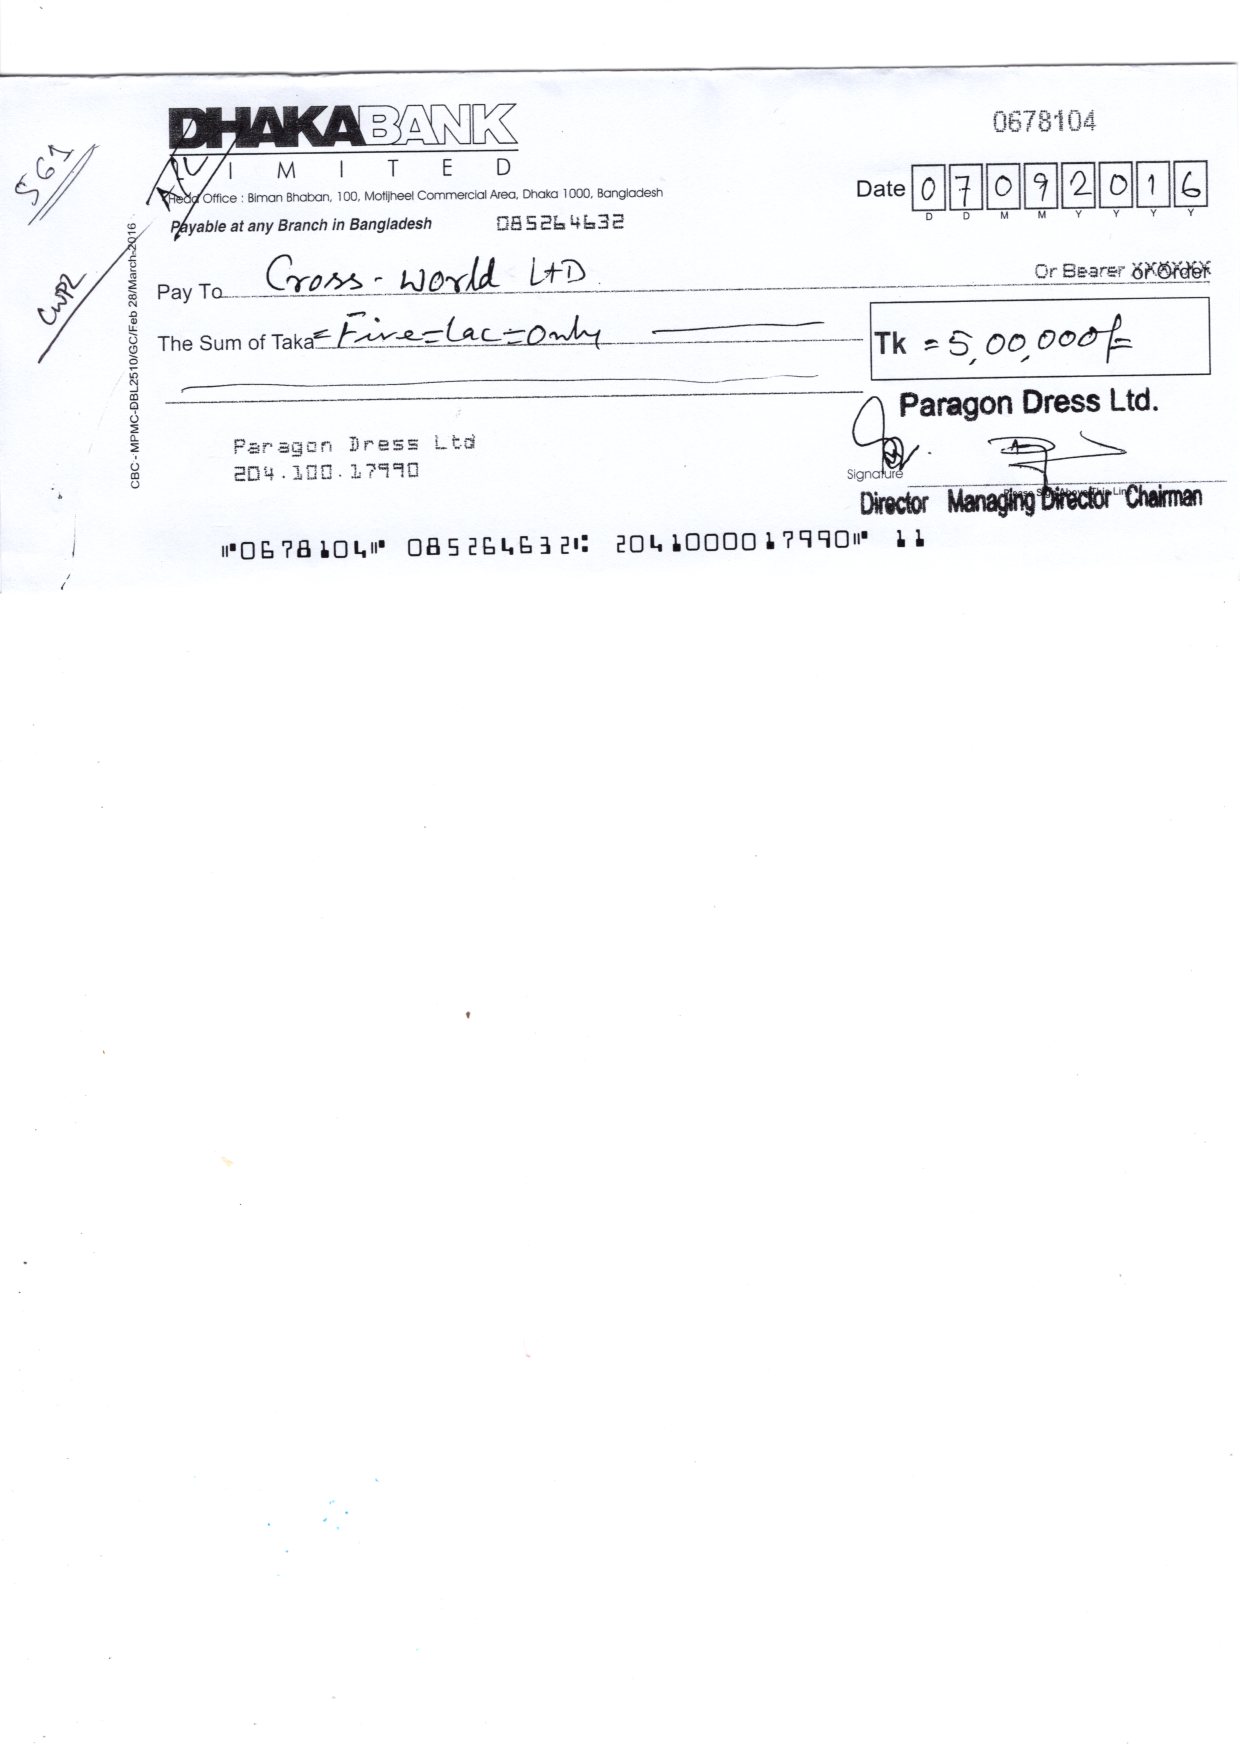 DHAKABANK
LIMITED
Head Office : Biman Bhaban, 100, Motijheel Commercial Area, Dhaka 1000, Bangladesh
Payable at any Branch in Bangladesh 085264632
0678104
Date 07092016
D D M M Y Y Y Y
561
CWPL
CBC - MPMC-DBL2510/GC/Feb 28/March-2016
Pay To Cross-World LTD Or Bearer or Order
The Sum of Taka =Five=Lac=Only
Tk =5,00,000/=
Paragon Dress Ltd.
Paragon Dress Ltd
204.100.17990
Signature
Director Managing Director Chairman
⑈0678104⑈ 085264632⑆ 2041000017990⑈ 11